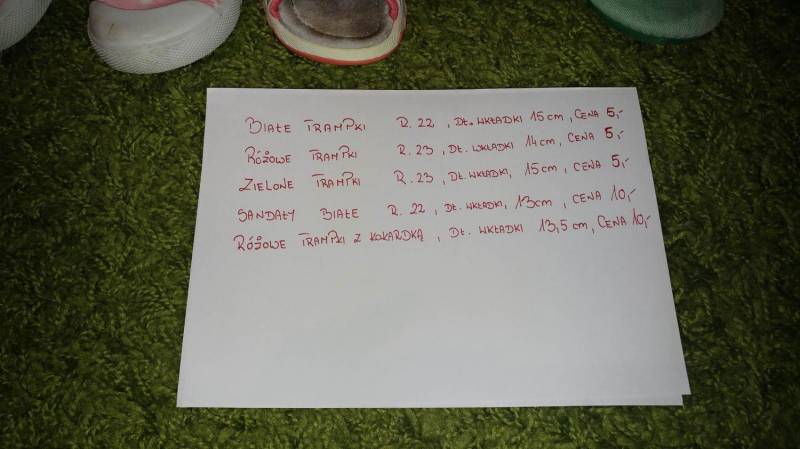 BIAŁE TRAMPKI R. 22 , DŁ. WKŁADKI 15 cm , CENA 5,-
RÓŻOWE TRAMPKI R. 23 , DŁ. WKŁADKI 14 cm , CENA 5,-
ZIELONE TRAMPKI R. 23 , DŁ. WKŁADKI, 15 cm , CENA 5,-
SANDAŁY BIAŁE R. 22 , DŁ. WKŁADKI, 13 cm , CENA 10,-
RÓŻOWE TRAMPKI Z KOKARDKĄ , DŁ. WKŁADKI 13,5 cm , CENA 10,-